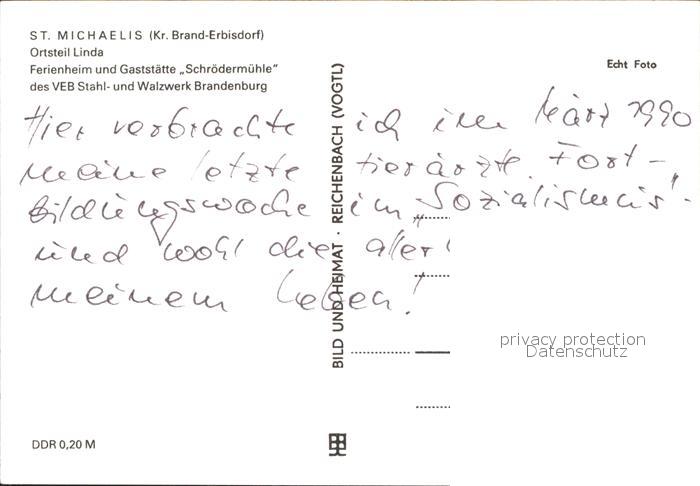 ST. MICHAELIS (Kr. Brand-Erbisdorf)
Ortsteil Linda
Ferienheim und Gaststätte „Schrödermühle"
des VEB Stahl- und Walzwerk Brandenburg
Echt Foto
Hier verbrachte ich im März 1990
meine letzte tierärztl. Fort-
bildungswoche im „Sozialismus"-
und wohl die aller
meinem Leben!
BILD UND HEIMAT · REICHENBACH (VOGTL)
privacy protection
Datenschutz
DDR 0,20 M